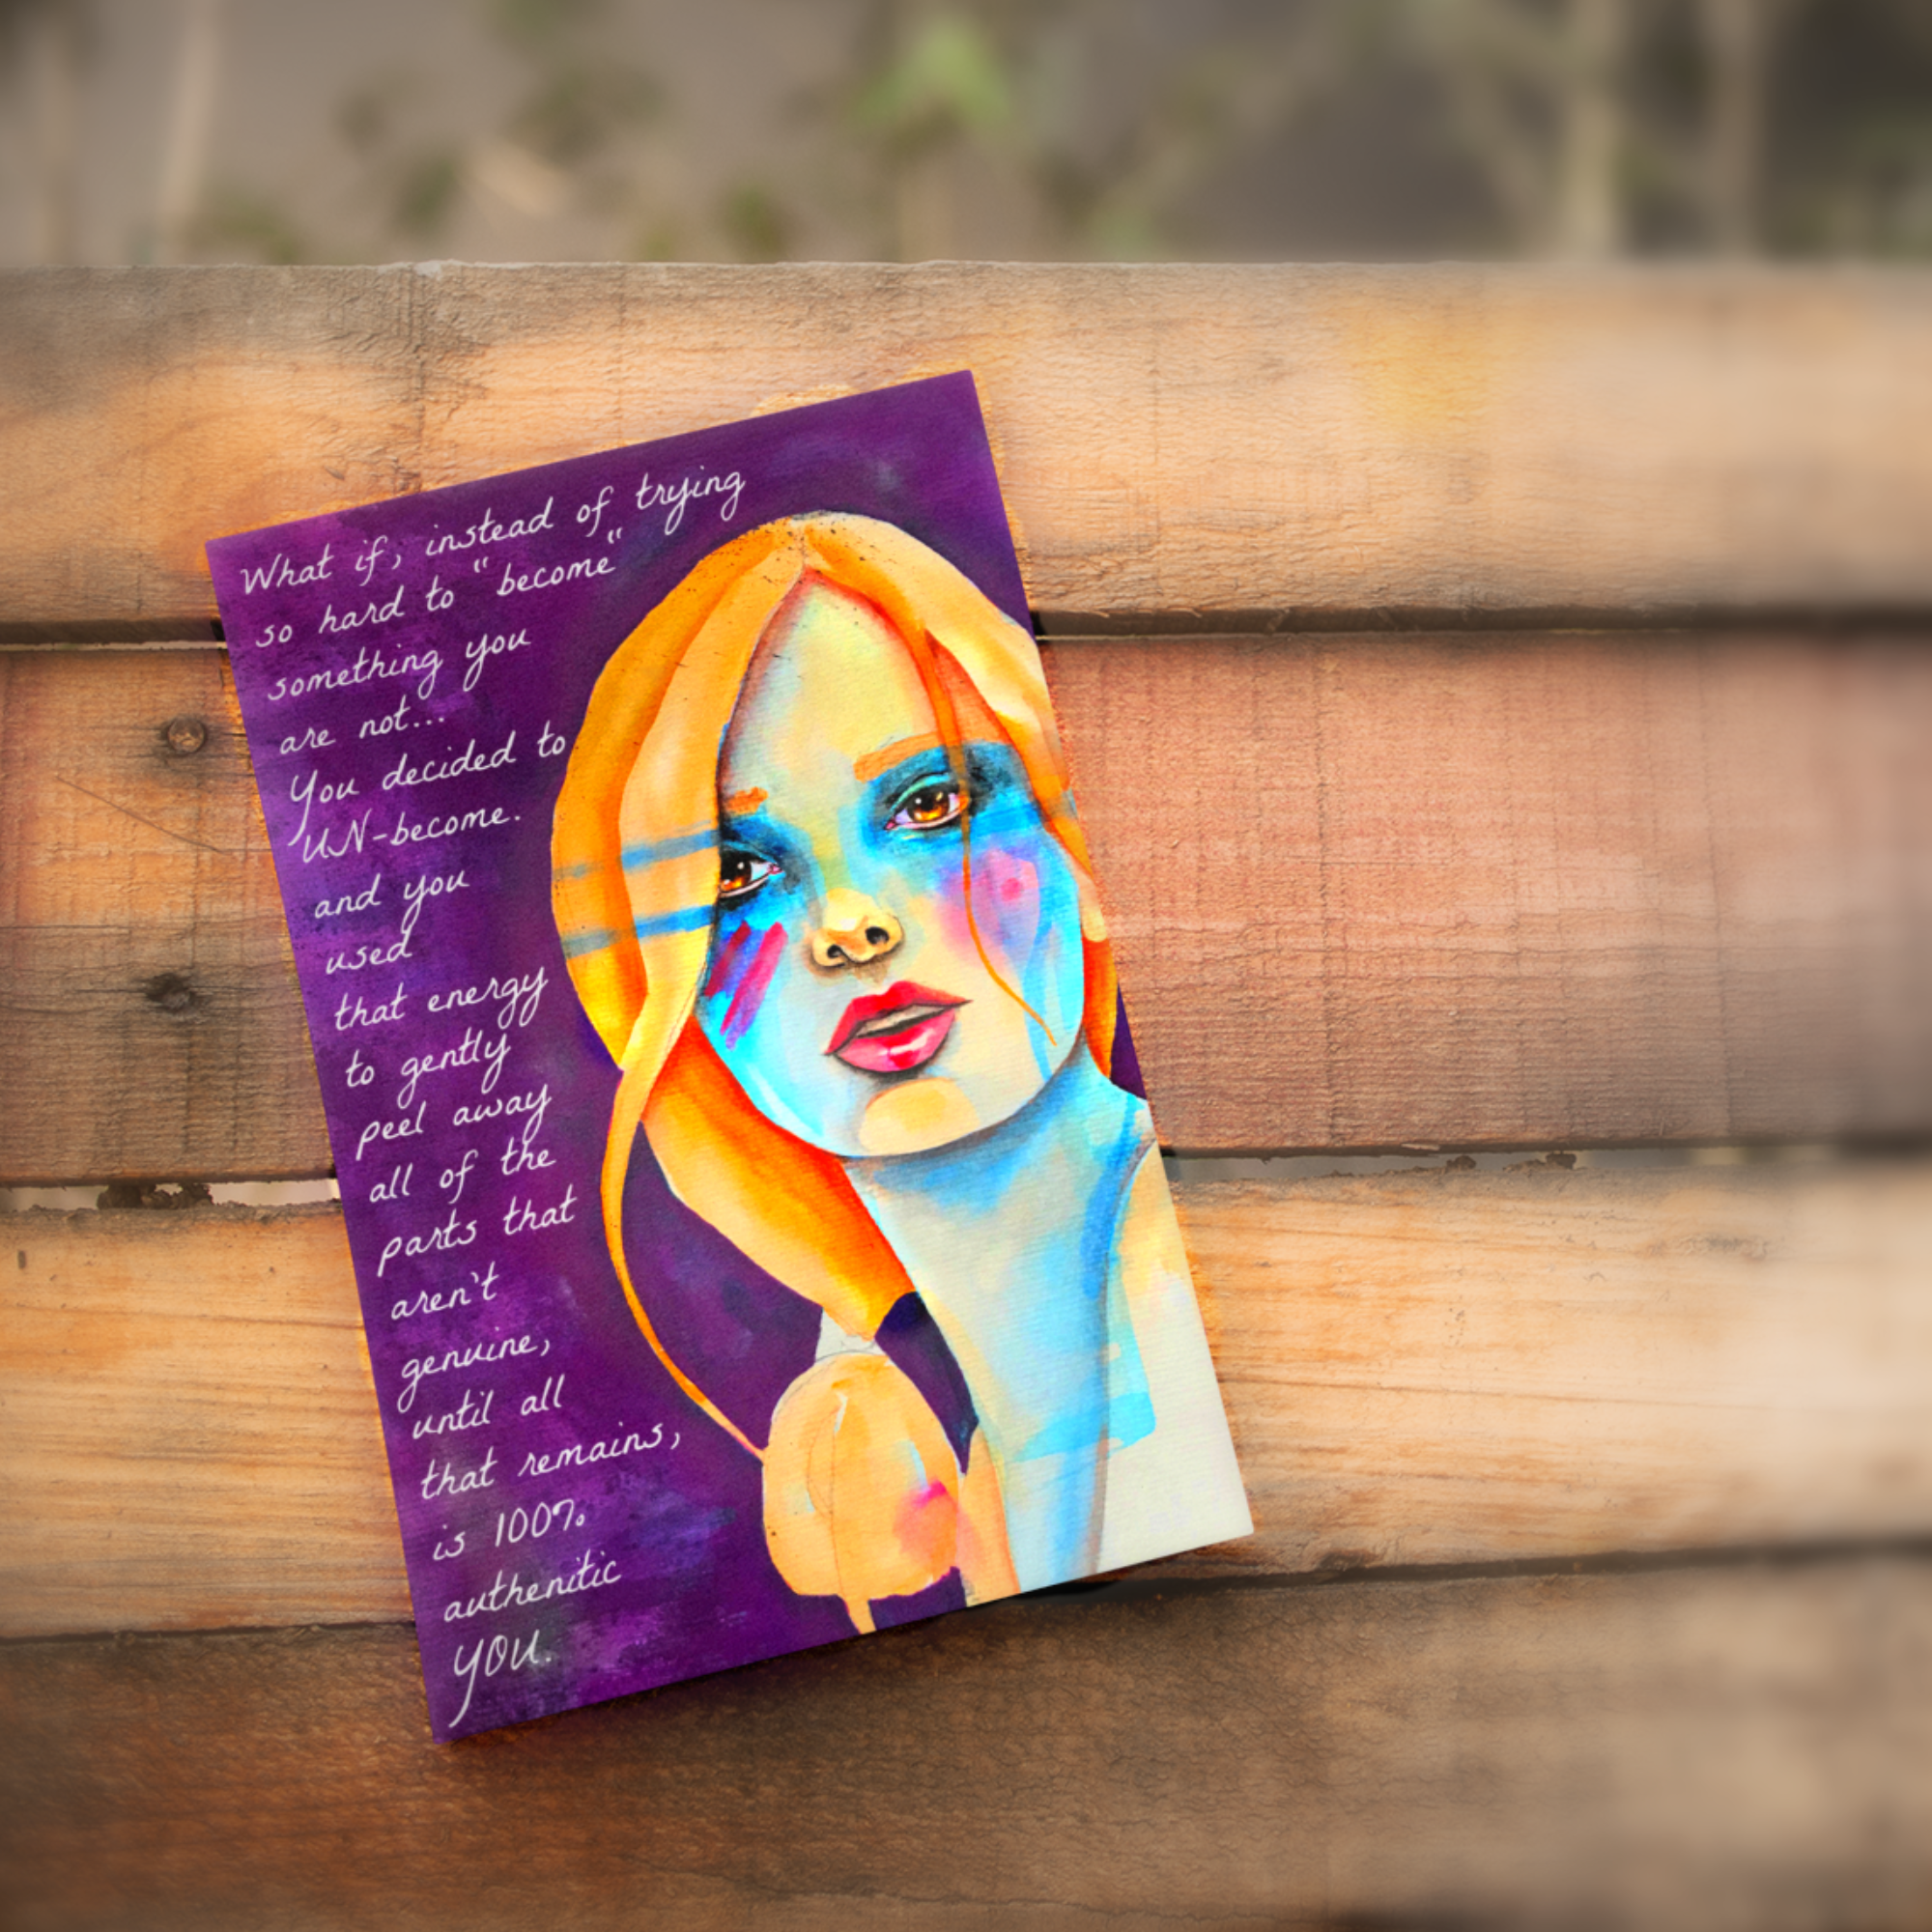 What if, instead of trying
so hard to "become"
something you
are not...
You decided to
UN-become.
and you
used
that energy
to gently
peel away
all of the
parts that
aren't
genuine,
until all
that remains,
is 100%
authenitic
YOU.